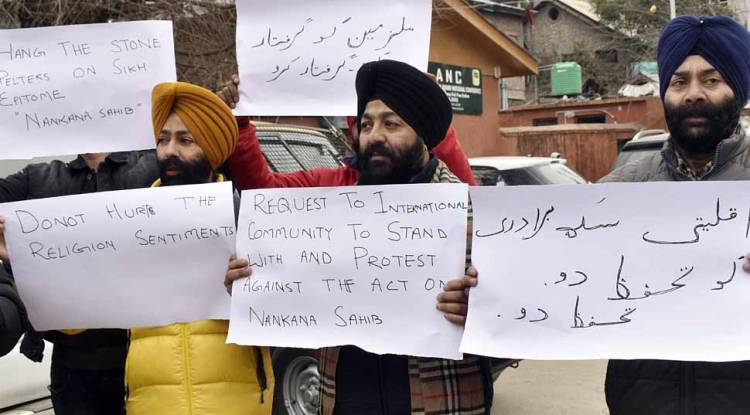 HANG THE STONE
PELTERS ON SIKH
EPITOME
"NANKANA SAHIB"
ملزمین کو گرفتار
گرفتار کرو
ANC
DONOT HURTS THE
RELIGION SENTIMENTS
REQUEST TO INTERNATIONAL
COMMUNITY TO STAND
WITH AND PROTEST
AGAINST THE ACT ON
NANKANA SAHIB
اقلیتی سکھ برادری
کو تحفظ دو.
تحفظ دو.